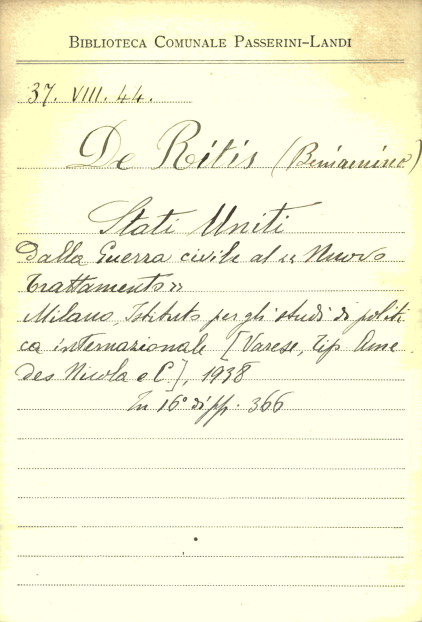 BIBLIOTECA COMUNALE PASSERINI-LANDI
37. VIII. 44.
De Ritis (Beniamino)
Stati Uniti
Dalla Guerra civile al «Nuovo
Trattamento»
Milano, Istituto per gli studi di politi
ca internazionale [Varese, Tip. Ame
des Nicola e C.], 1938
In 16° di pp. 366